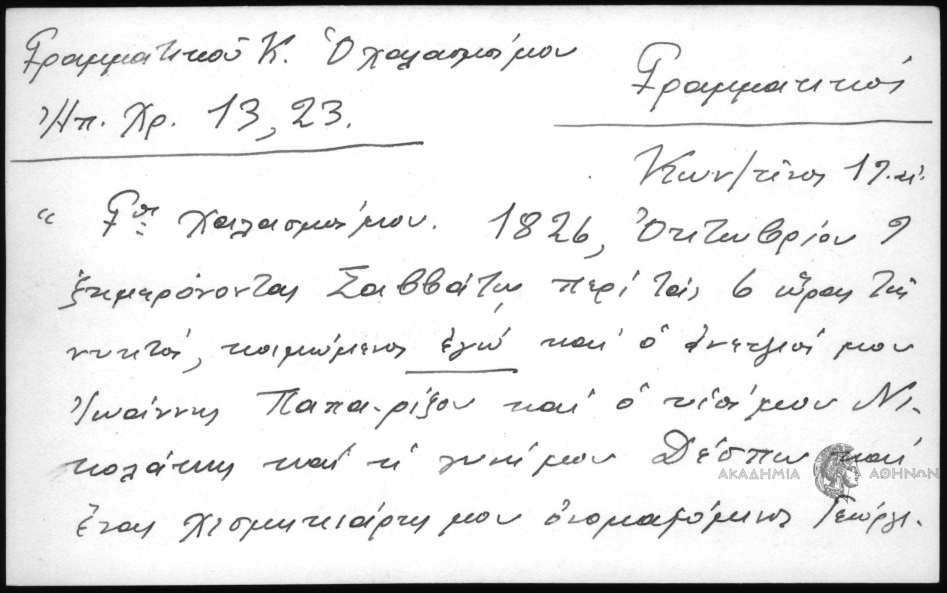 Γραμματικού Κ. Ὁ χαλασμός μου
Γραμματικός
Ἠπ. Χρ. 13, 23.
Κων/τίνος 19. αἰ.
“ Γιὰ χαλασμός μου. 1826, Ὀκτωβρίου 9
ξημερόνοντας Σαββάτῳ περὶ τὰς 6 ὥρας τῆς
νυκτός, κοιμώμενος ἐγώ καὶ ὁ ἀνεψιός μου
Ἰωάννης Παπα-ρίζου καὶ ὁ υἱός μου Νι-
κολάκης καὶ ἡ γυνή μου Δέσπω καὶ
ἕνας χισμηκιάρης μου ὀνομαζόμενος Γεώργι-
ΑΚΑΔΗΜΙΑ ΑΘΗΝΩΝ